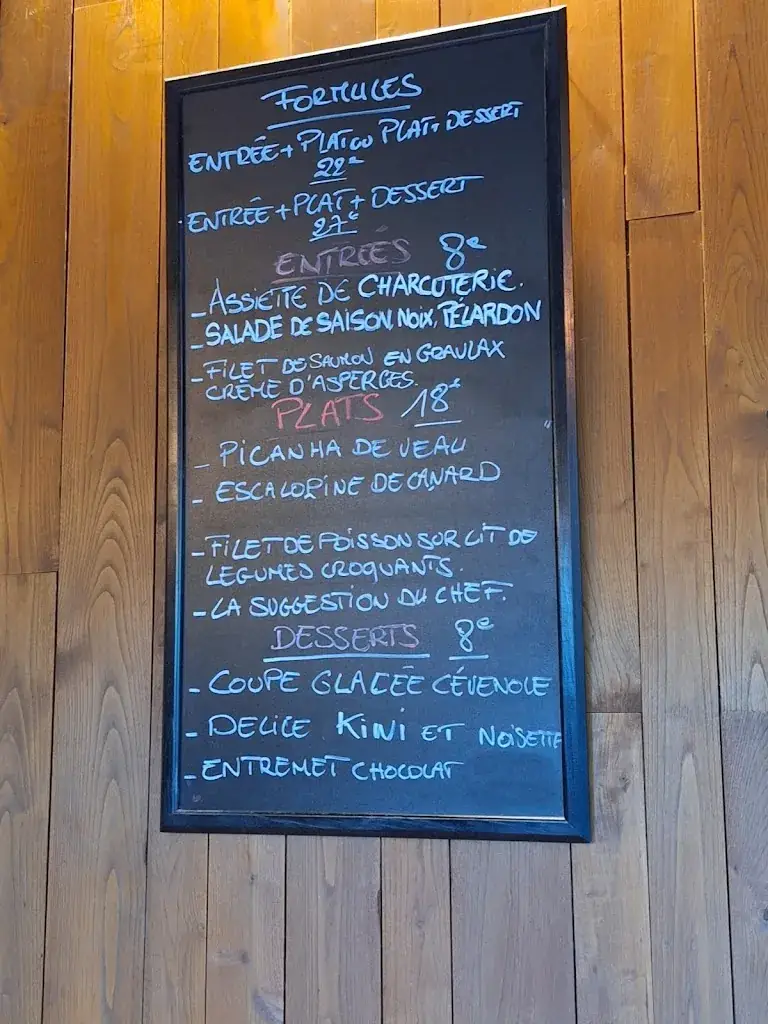 FORMULES
ENTRÉE + PLAT OU PLAT + DESSERT
22€
ENTRÉE + PLAT + DESSERT
27€
ENTRÉES 8€
- ASSIETTE DE CHARCUTERIE.
- SALADE DE SAISON, NOIX, PÉLARDON
- FILET DE SAUMON EN GRAVLAX
CRÈME D'ASPERGES.
PLATS 18€
- PICANHA DE VEAU
- ESCALOPINE DE CANARD
- FILET DE POISSON SUR LIT DE
LEGUMES CROQUANTS.
- LA SUGGESTION DU CHEF.
DESSERTS 8€
- COUPE GLACÉE CÉVENOLE
- DELICE KIWI ET NOISETTE
- ENTREMET CHOCOLAT